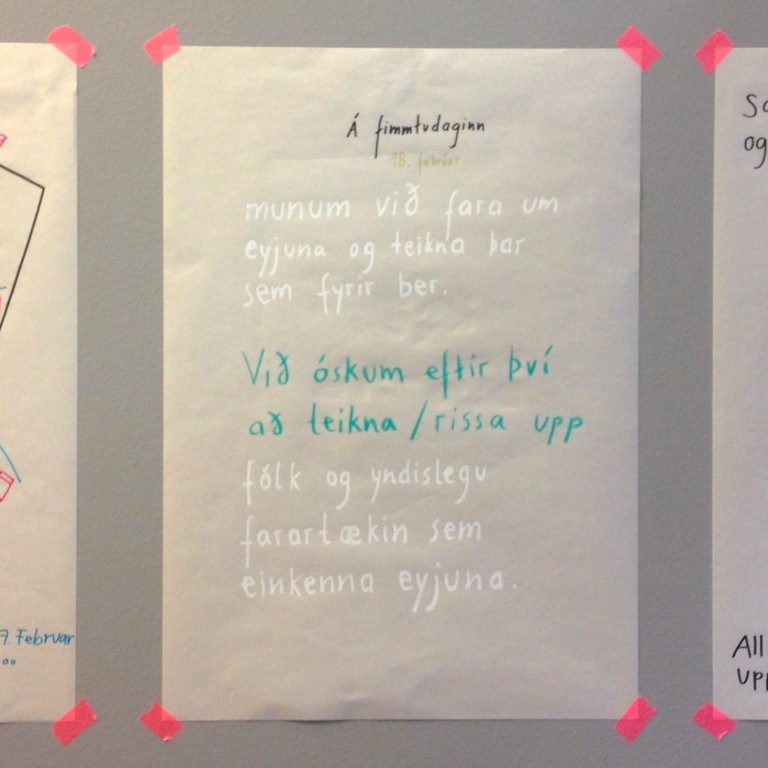 Á fimmtudaginn
18. febrúar
munum við fara um
eyjuna og teikna þar
sem fyrir ber.
Við óskum eftir því
að teikna/rissa upp
fólk og yndislegu
farartækin sem
einkenna eyjuna.
7. Februar
og
All
upp